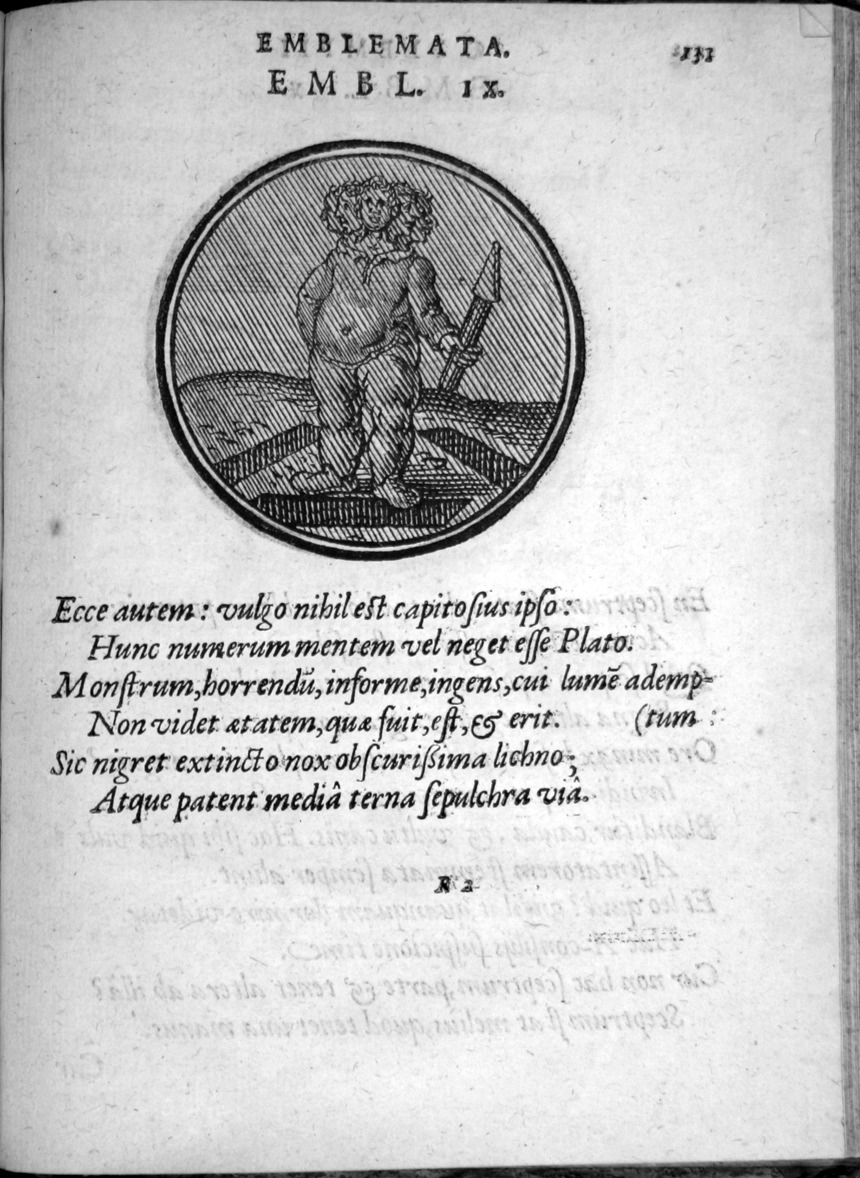 EMBLEMATA.
131
EMBL. IX.
Ecce autem: vulgo nihil est capitoſius ipſo:
Hunc numerum mentem vel neget eſſe Plato.
Monſtrum, horrendũ, informe, ingens, cui lumẽ ademp-
Non videt ætatem, quæ fuit, eſt, & erit. (tum
Sic nigret extincto nox obſcuriſſima lichno;
Atque patent mediâ terna ſepulchra viâ.
R 2